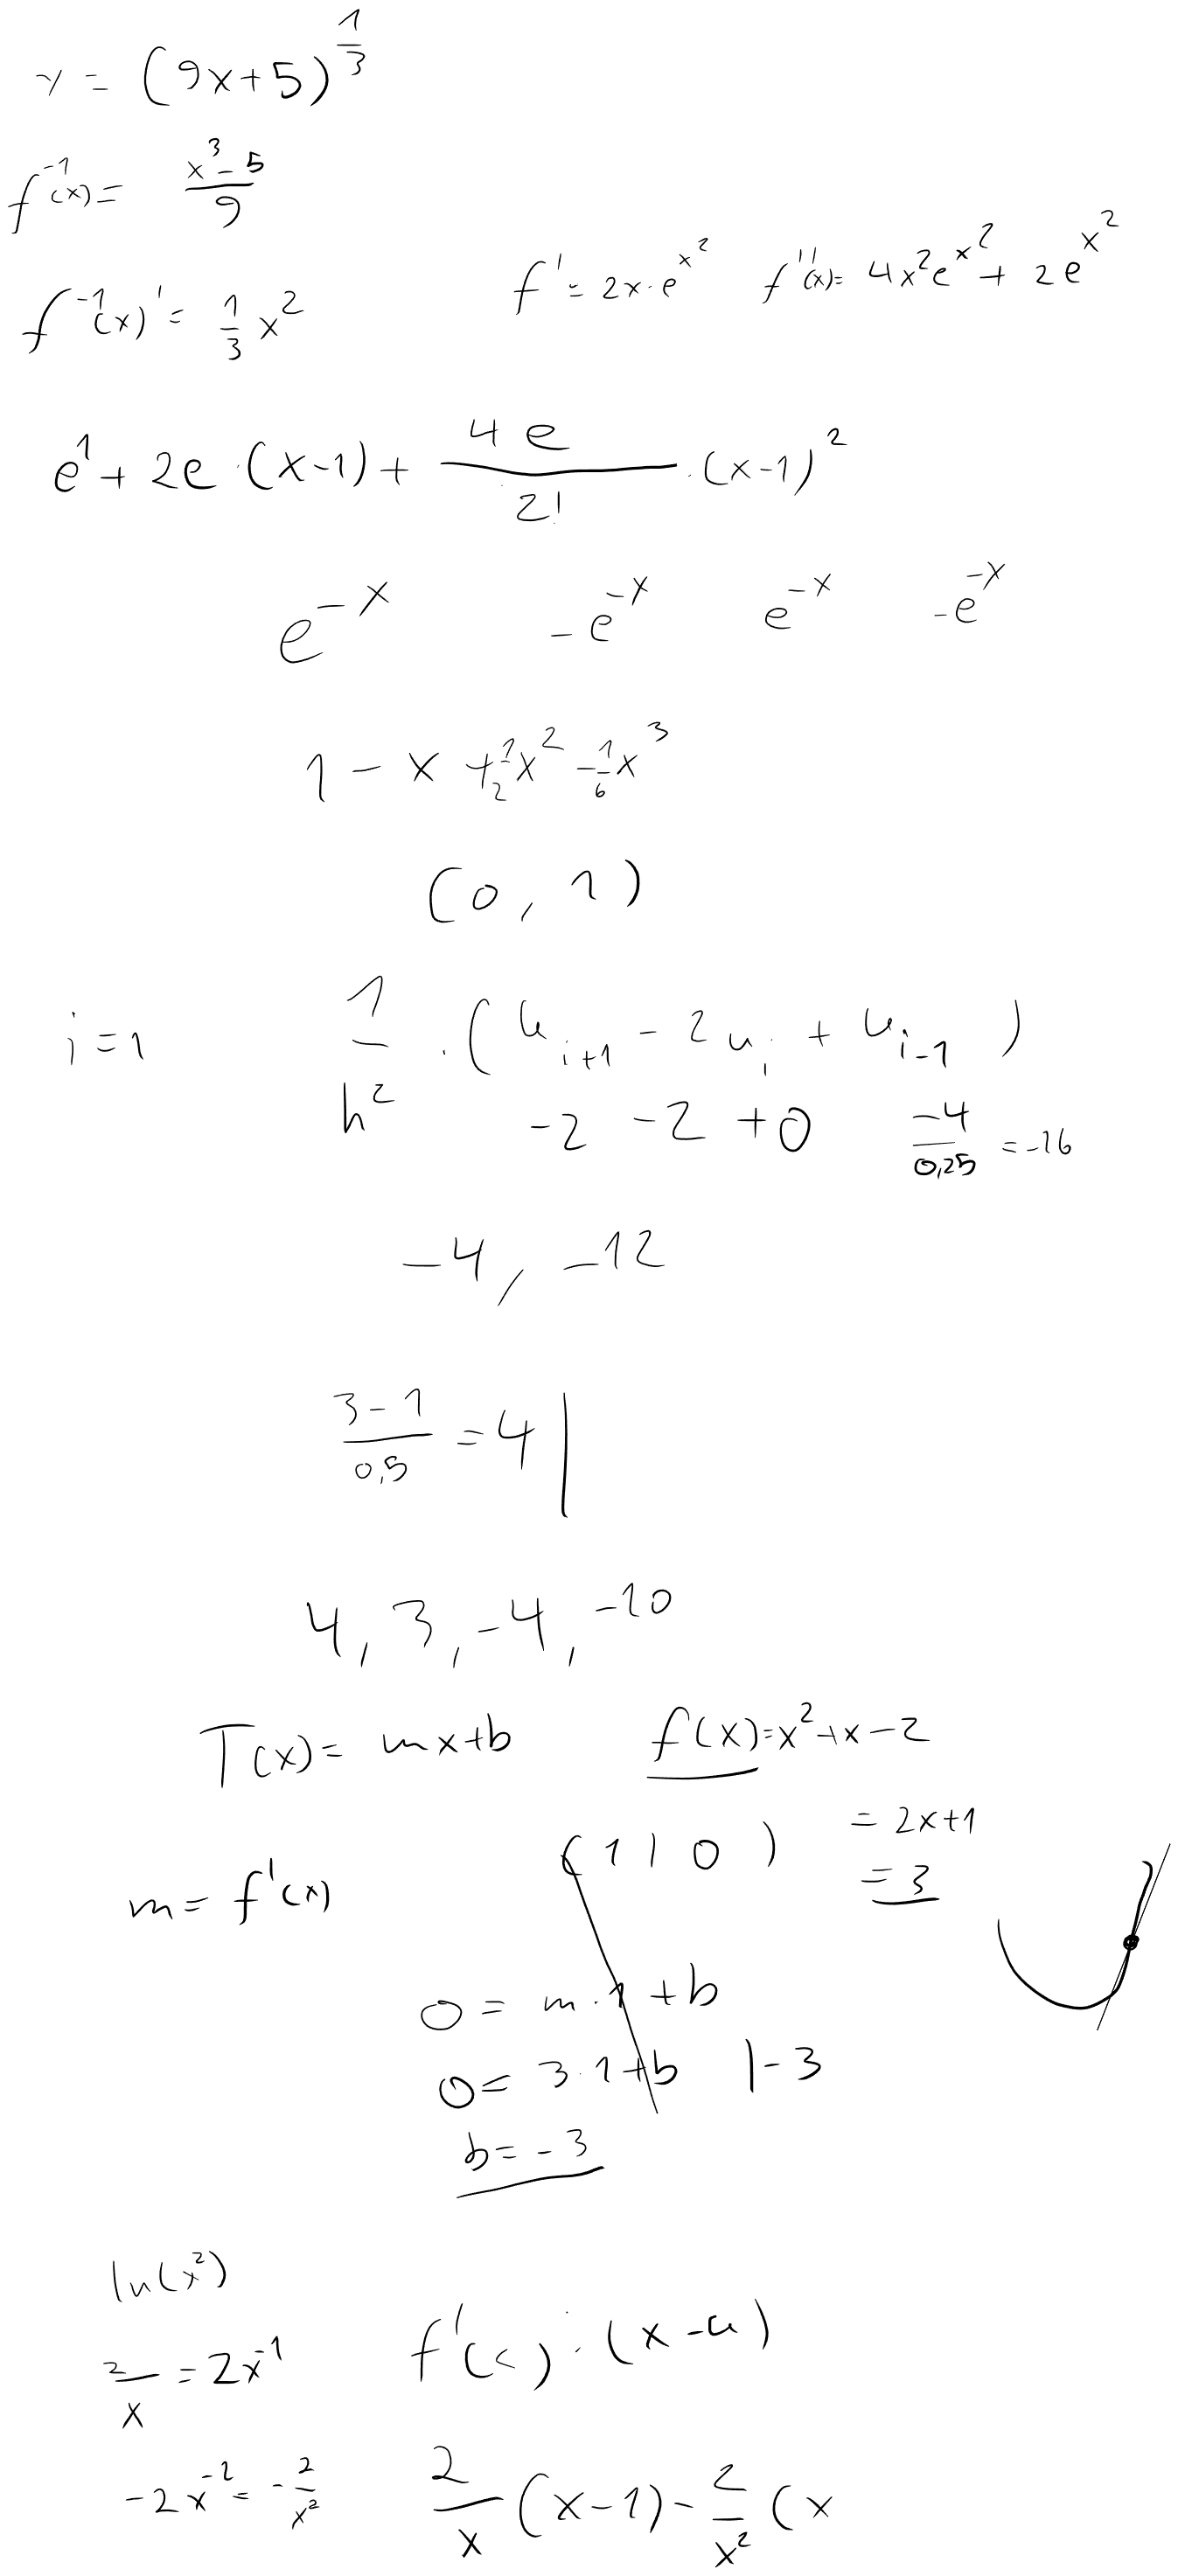 y = (9x+5)^(1/3)
f^-1(x) = (x^3-5)/9
f^-1(x)' = 1/3 x^2
f' = 2x·e^(x^2) f''(x) = 4x^2e^(x^2) + 2e^(x^2)
e^1 + 2e·(x-1) + 4e/2!·(x-1)^2
e^-x -e^-x e^-x -e^-x
1 - x + 1/2 x^2 - 1/6 x^3
(0, 1)
i=1 1/h^2·(u_i+1 - 2u_i + u_i-1)
-2 -2 +0 -4/0,25 = -16
-4, -12
(3-1)/0,5 = 4|
4, 3, -4, -10
T(x) = mx+b f(x)=x^2+x-2
(1|0) = 2x+1
m = f'(x) = 3
0 = m·1+b
0 = 3·1+b |-3
b = -3
ln(x^2)
2/x = 2x^-1 f'( )·(x-a)
-2x^-2 = -2/x^2 2/x (x-1) - 2/x^2 (x